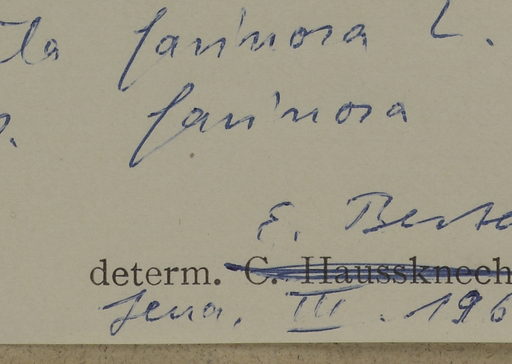 farinosa L.
farinosa
E.
determ. C. Haussknech
Jena, III. 196